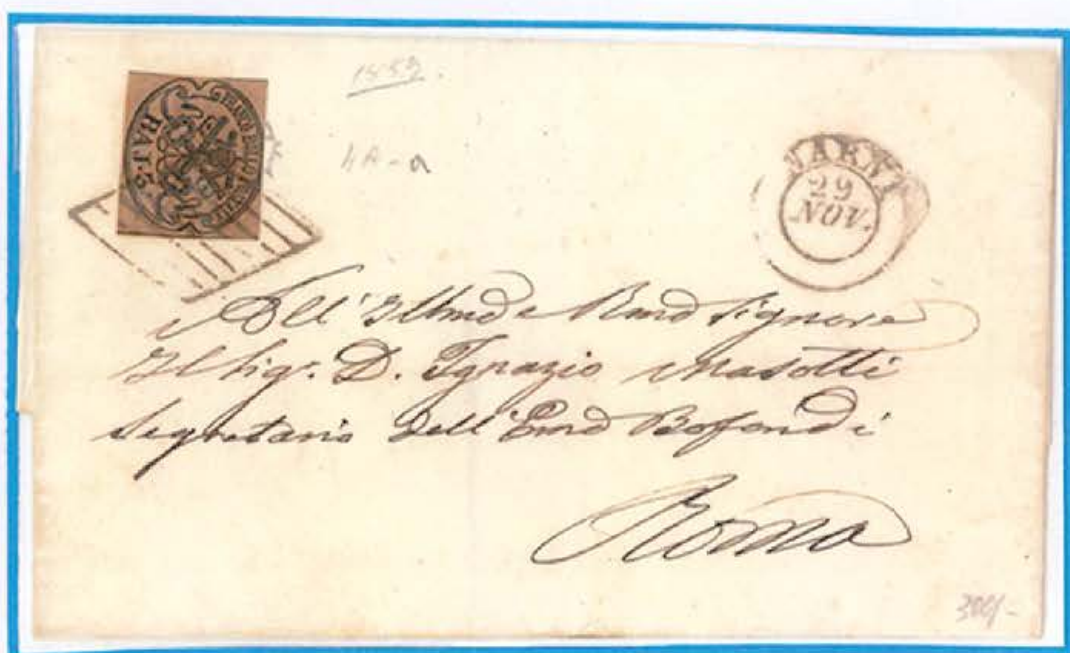 1859.
4A-a
FRANCO BOLLO POSTALE
BAJ. 3
NARNI
29
NOV.
All' Illmo e Rmo Signore
Il Sig. D. Ignazio Masotti
Segretario dell' Emo Bofondi
Roma
300/-